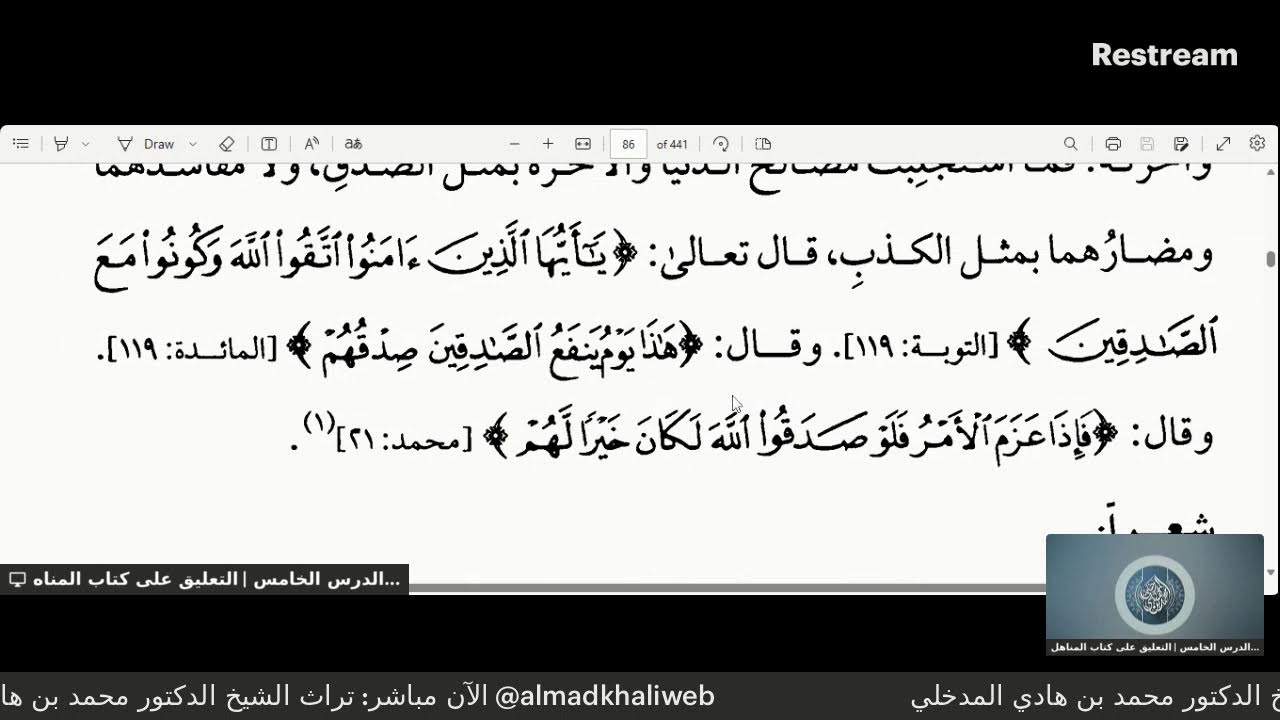 Restream
Draw
86 of 441
وآخرتـه. فمـا استُجلِبت مصـالح الـدنيا والآخـرة بمثـل الصـدقِ، ولا مفاسـدهما
ومضـارُهما بمثـل الكـذبِ، قـال تعـالىٰ: ﴿يَٰٓأَيُّهَا ٱلَّذِينَ ءَامَنُواْ ٱتَّقُواْ ٱللَّهَ وَكُونُواْ مَعَ
ٱلصَّٰدِقِينَ﴾ [التوبـة: ١١٩]. وقـال: ﴿هَٰذَا يَوْمُ يَنفَعُ ٱلصَّٰدِقِينَ صِدْقُهُمْ﴾ [المائـدة: ١١٩].
وقال: ﴿فَإِذَا عَزَمَ ٱلْأَمْرُ فَلَوْ صَدَقُواْ ٱللَّهَ لَكَانَ خَيْرًا لَّهُمْ﴾ [محمد: ٢١](١).
الدرس الخامس | التعليق على كتاب المناه...
الدرس الخامس | التعليق على كتاب المناهل...
خ الدكتور محمد بن هادي المدخلي
@almadkhaliweb الآن مباشر: تراث الشيخ الدكتور محمد بن ها